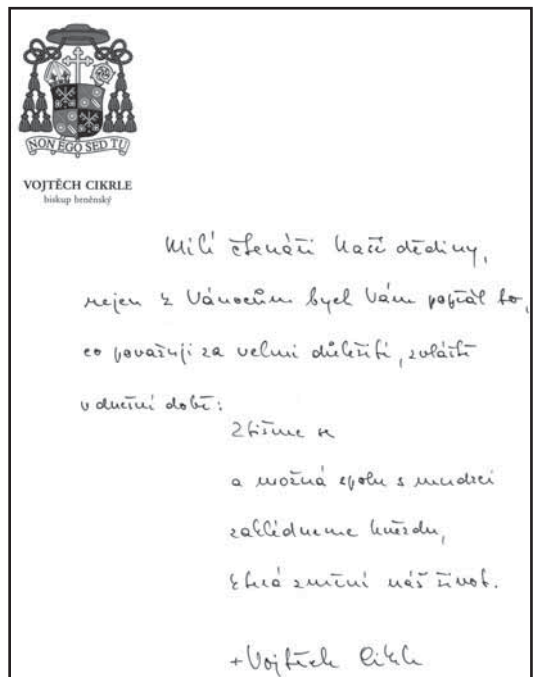 NON EGO SED TU
VOJTĚCH CIKRLE
biskup brněnský
Milí čtenáři Naší dědiny,
nejen k Vánocům bych Vám popřál to,
co považuji za velmi důležité, zvláště
v dnešní době:
Ztišme se
a možná spolu s mudrci
zahlédneme hvězdu,
která změní náš život.
+ Vojtěch Cikrle